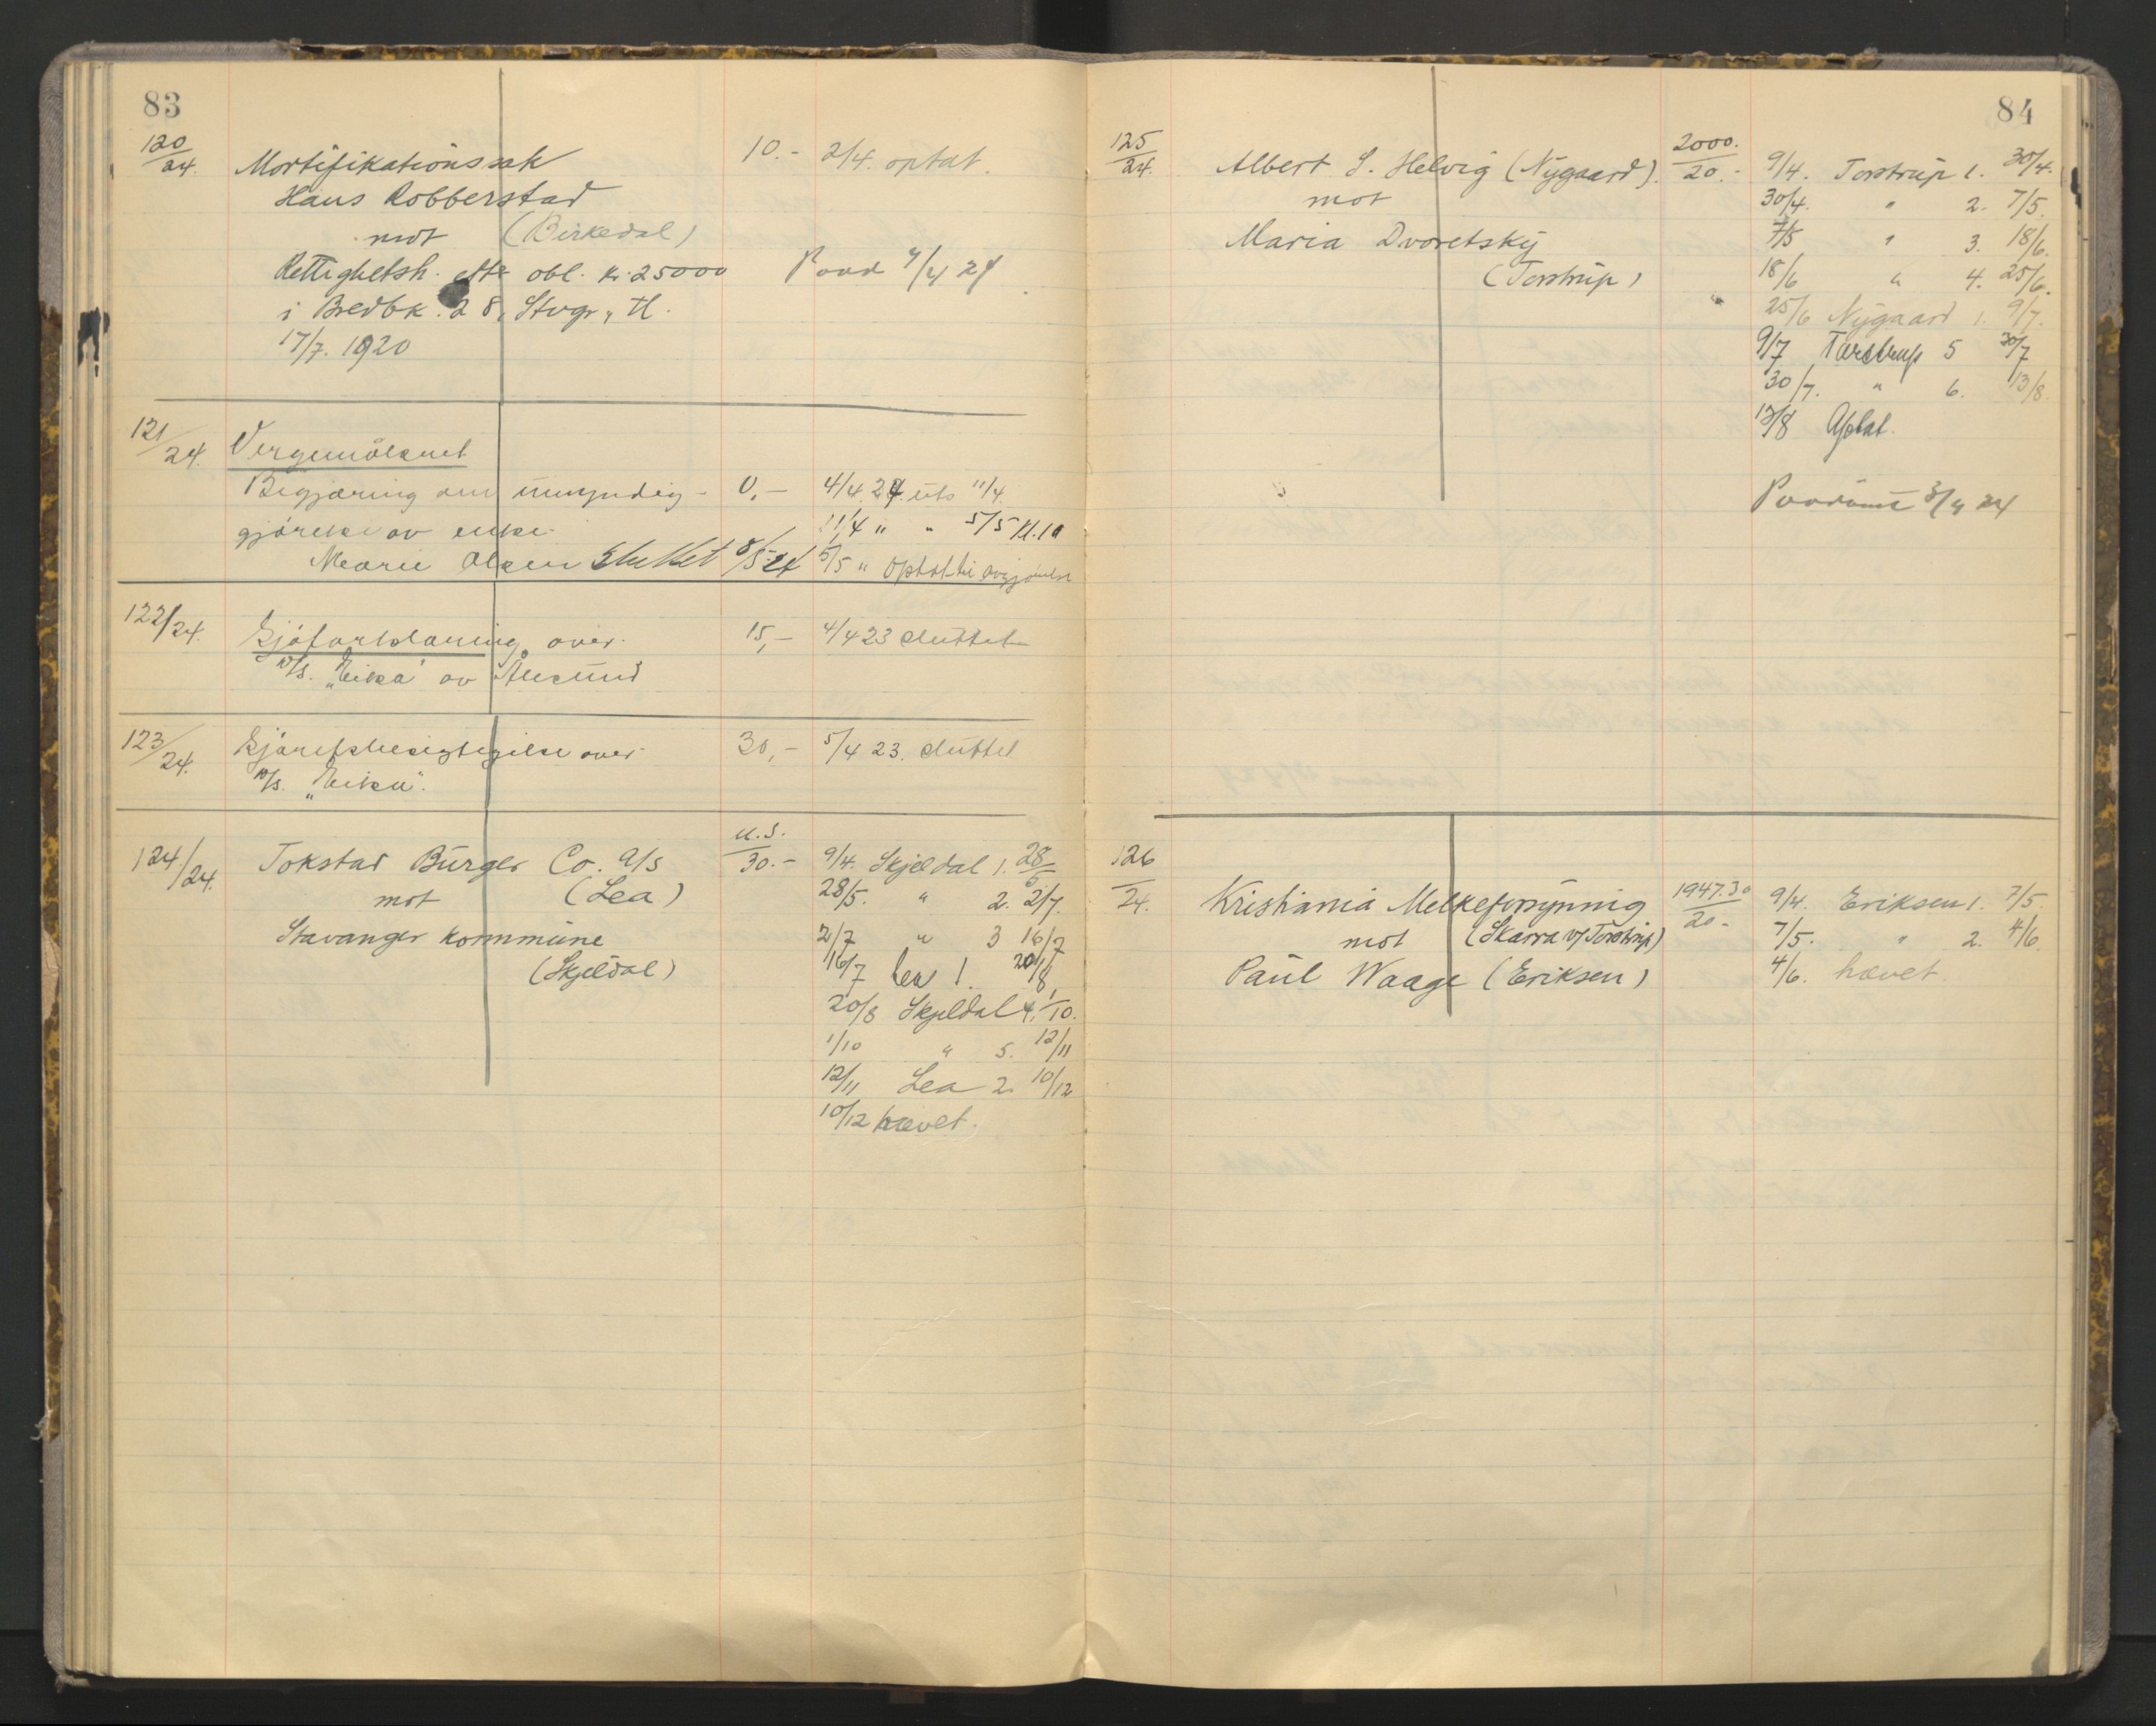 83
120/24. Mortifikationssak 10.- 2/4. optat.
Hans Robberstad
mot (Birkedal)
Rettighetsh. efter obl. kr. 25000
i Bredbk. 28, Stvgr., tl.
17/7. 1920
121/24. Vergemålsret
Begjæring om umyndig- 0,- 4/4. 24. uts 11/4.
gjørelse av enke 11/4 " " 5/5 kl. 10
Marie Olsen Sluttet 8/5-24 5/5 " optat til avgjørelse
122/24. Sjøforklaring over 15,- 4/4 23 sluttet
D/S. "Eika" av Ålesund
123/24. Sjøretsbesigtigelse over 30,- 5/4 23. sluttet
D/S. "Eika".
124/24. Tokstad Bürger Co. A/S u.s./30.- 9/4. Skjeldal 1. 28/5
mot (Lea) 28/5. " 2. 2/7.
Stavanger kommune 2/7 " 3 16/7
(Skjeldal) 16/7 Lea 1. 20/8
20/8 Skjeldal 4. 1/10.
1/10 " 5. 12/11
12/11 Lea 2. 10/12
10/12 hævet.
84
125/24. Albert S. Helvig (Nygaard). 2000./20.- 9/4. Torstrup 1. 30/4.
mot 30/4. " 2. 7/5.
Maria Dvoretsky 7/5 " 3. 18/6.
(Torstrup) 18/6 " 4. 25/6.
" 25/6 Nygaard 1. 9/7.
9/7 Torstrup 5 30/7
30/7. " 6. 13/8.
13/8 Optat.
126/24. Kristiania Melkeforsyning 1947.30/20.- 9/4. Eriksen 1. 7/5.
mot (Skarra v/ Torstrup) 7/5. " 2. 4/6.
Paul Waage (Eriksen) 4/6. hævet.